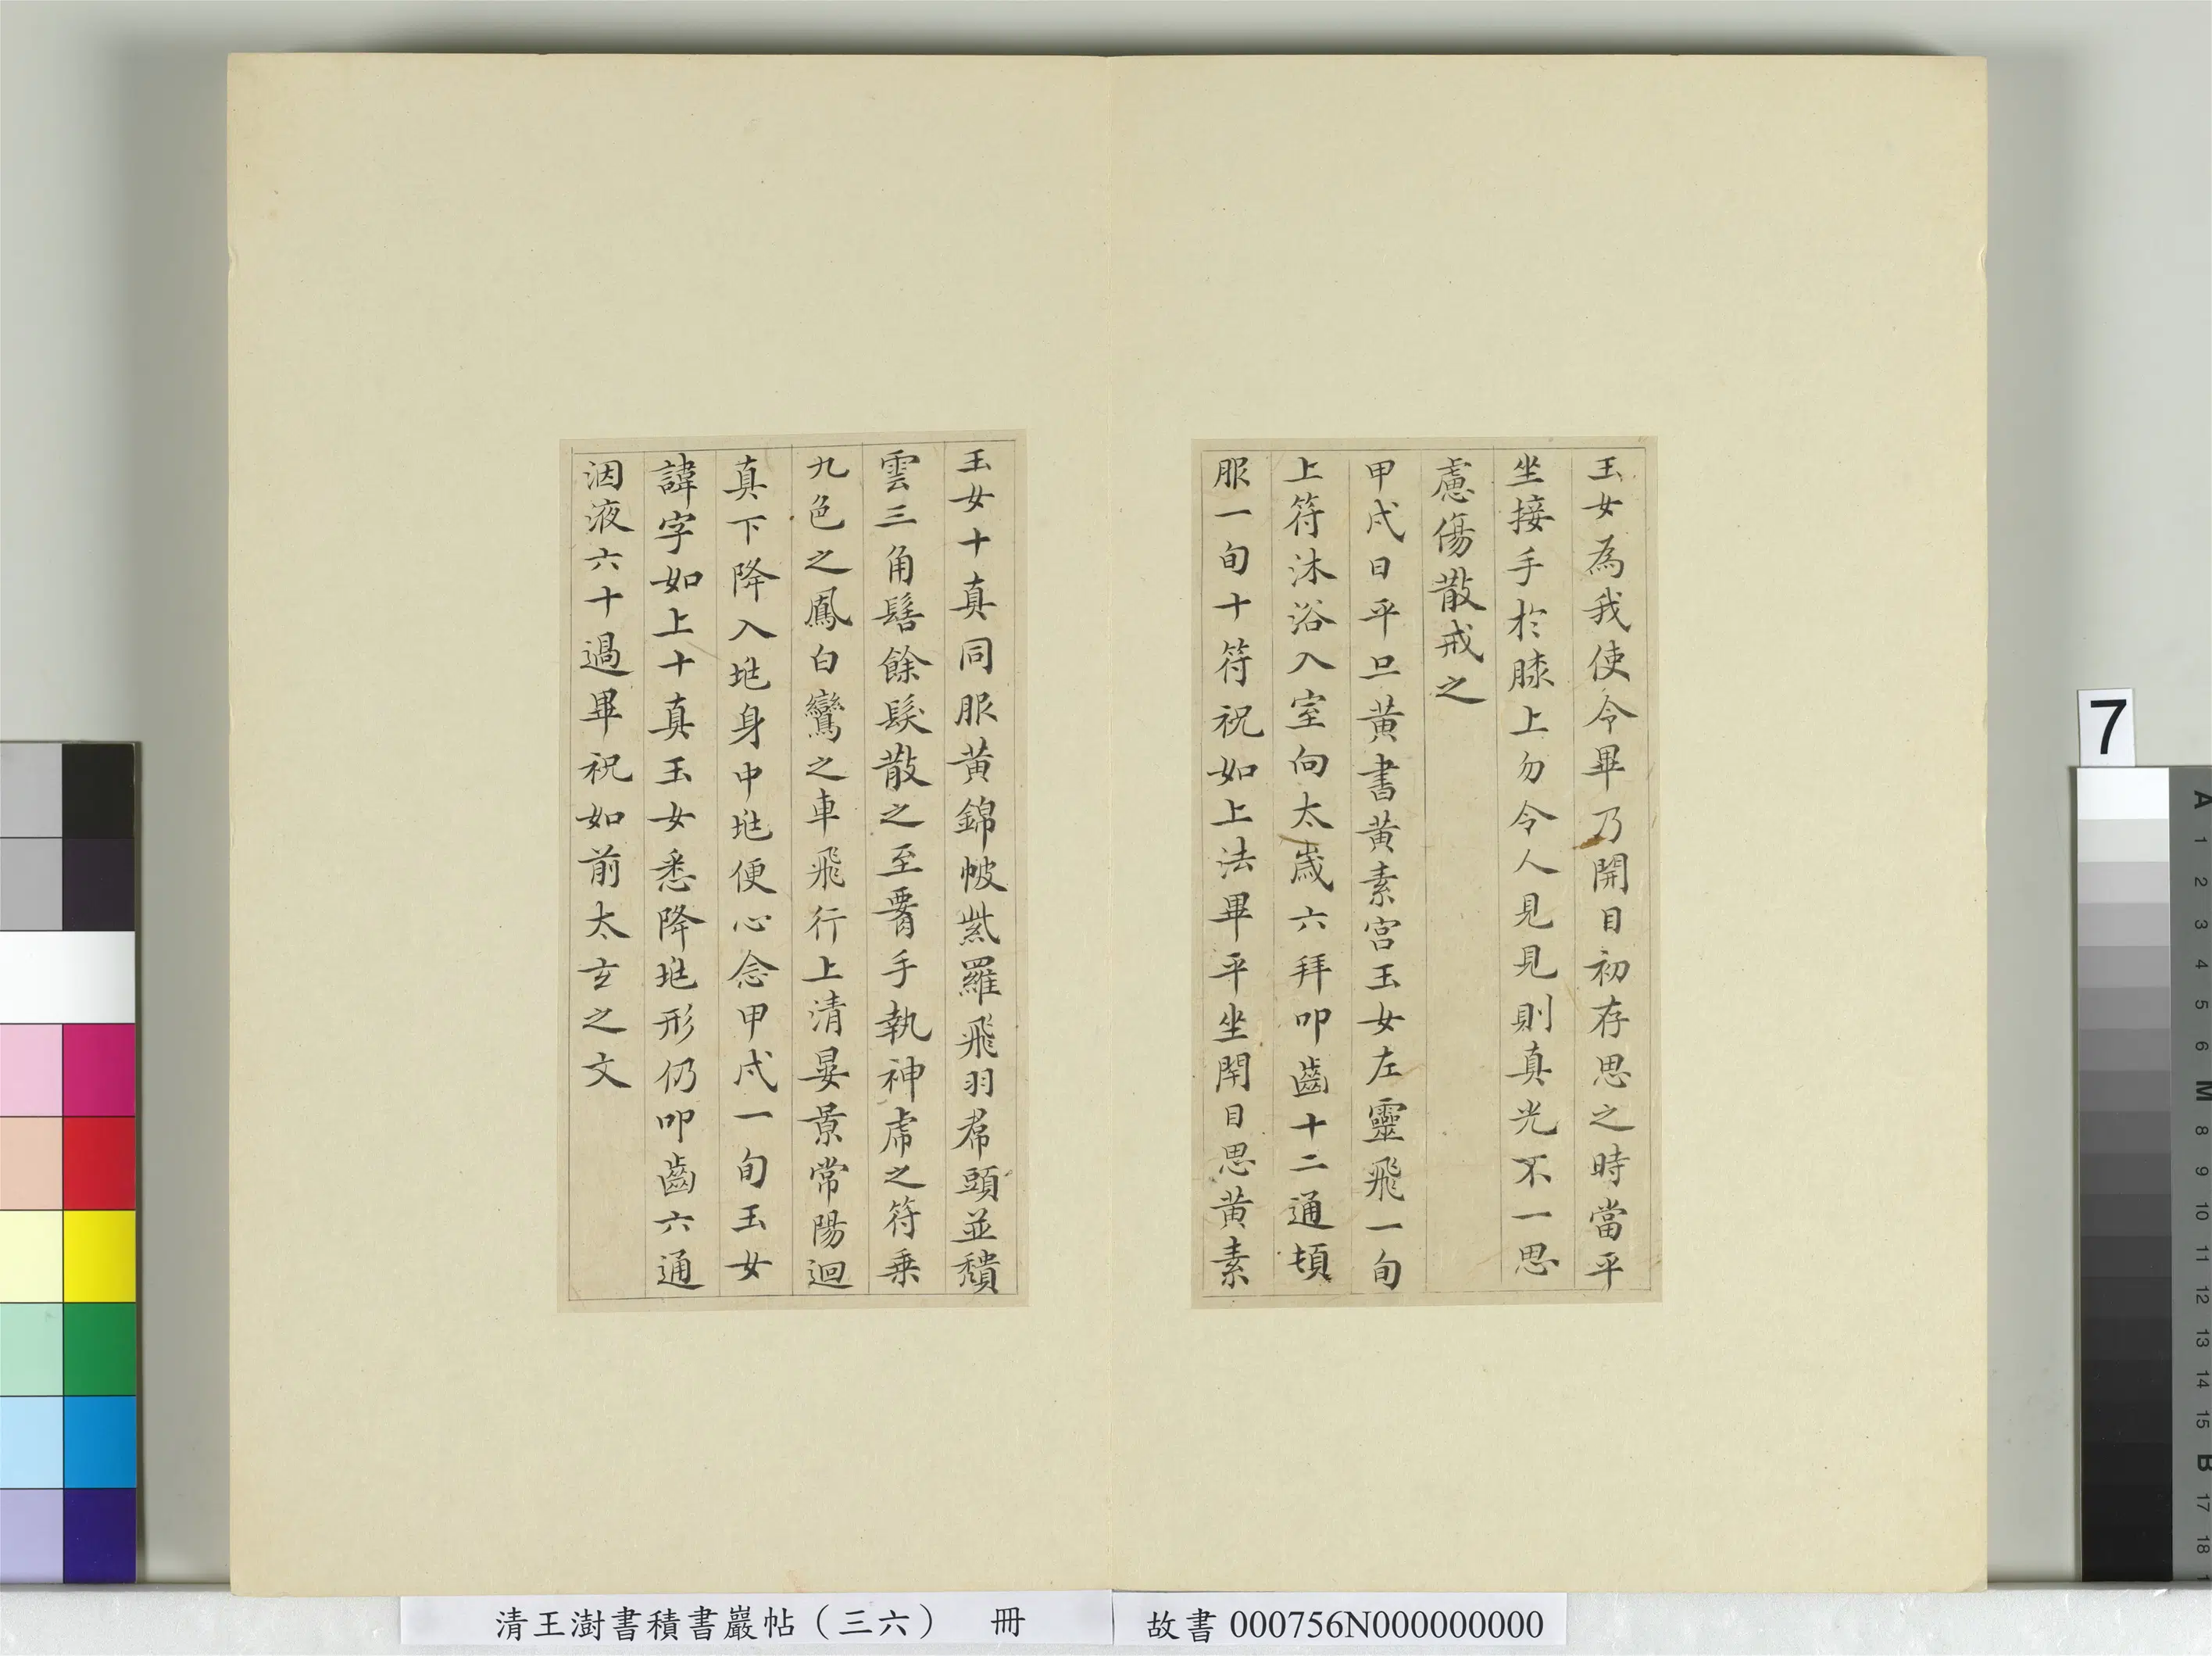 玉女為我使令畢乃開目初存思之時當平
坐接手於膝上勿令人見見則真光不一思
慮傷散戒之
甲戌日平旦黃書黃素宮玉女左靈飛一旬
上符沐浴入室向太歲六拜叩齒十二通頓
服一旬十符祝如上法畢平坐閉目思黃素
玉女十真同服黃錦帔紫羅飛羽帬頭並頹
雲三角髻餘髮散之至腰手執神虎之符乘
九色之鳳白鸞之車飛行上清晏景常陽迴
真下降入兆身中兆便心念甲戌一旬玉女
諱字如上十真玉女悉降兆形仍叩齒六通
洇液六十過畢祝如前太玄之文
清王澍書積書巖帖（三六） 冊
故書 000756N000000000
7
A
1
2
3
4
5
6
M
8
9
10
11
12
13
14
15
B
17
18